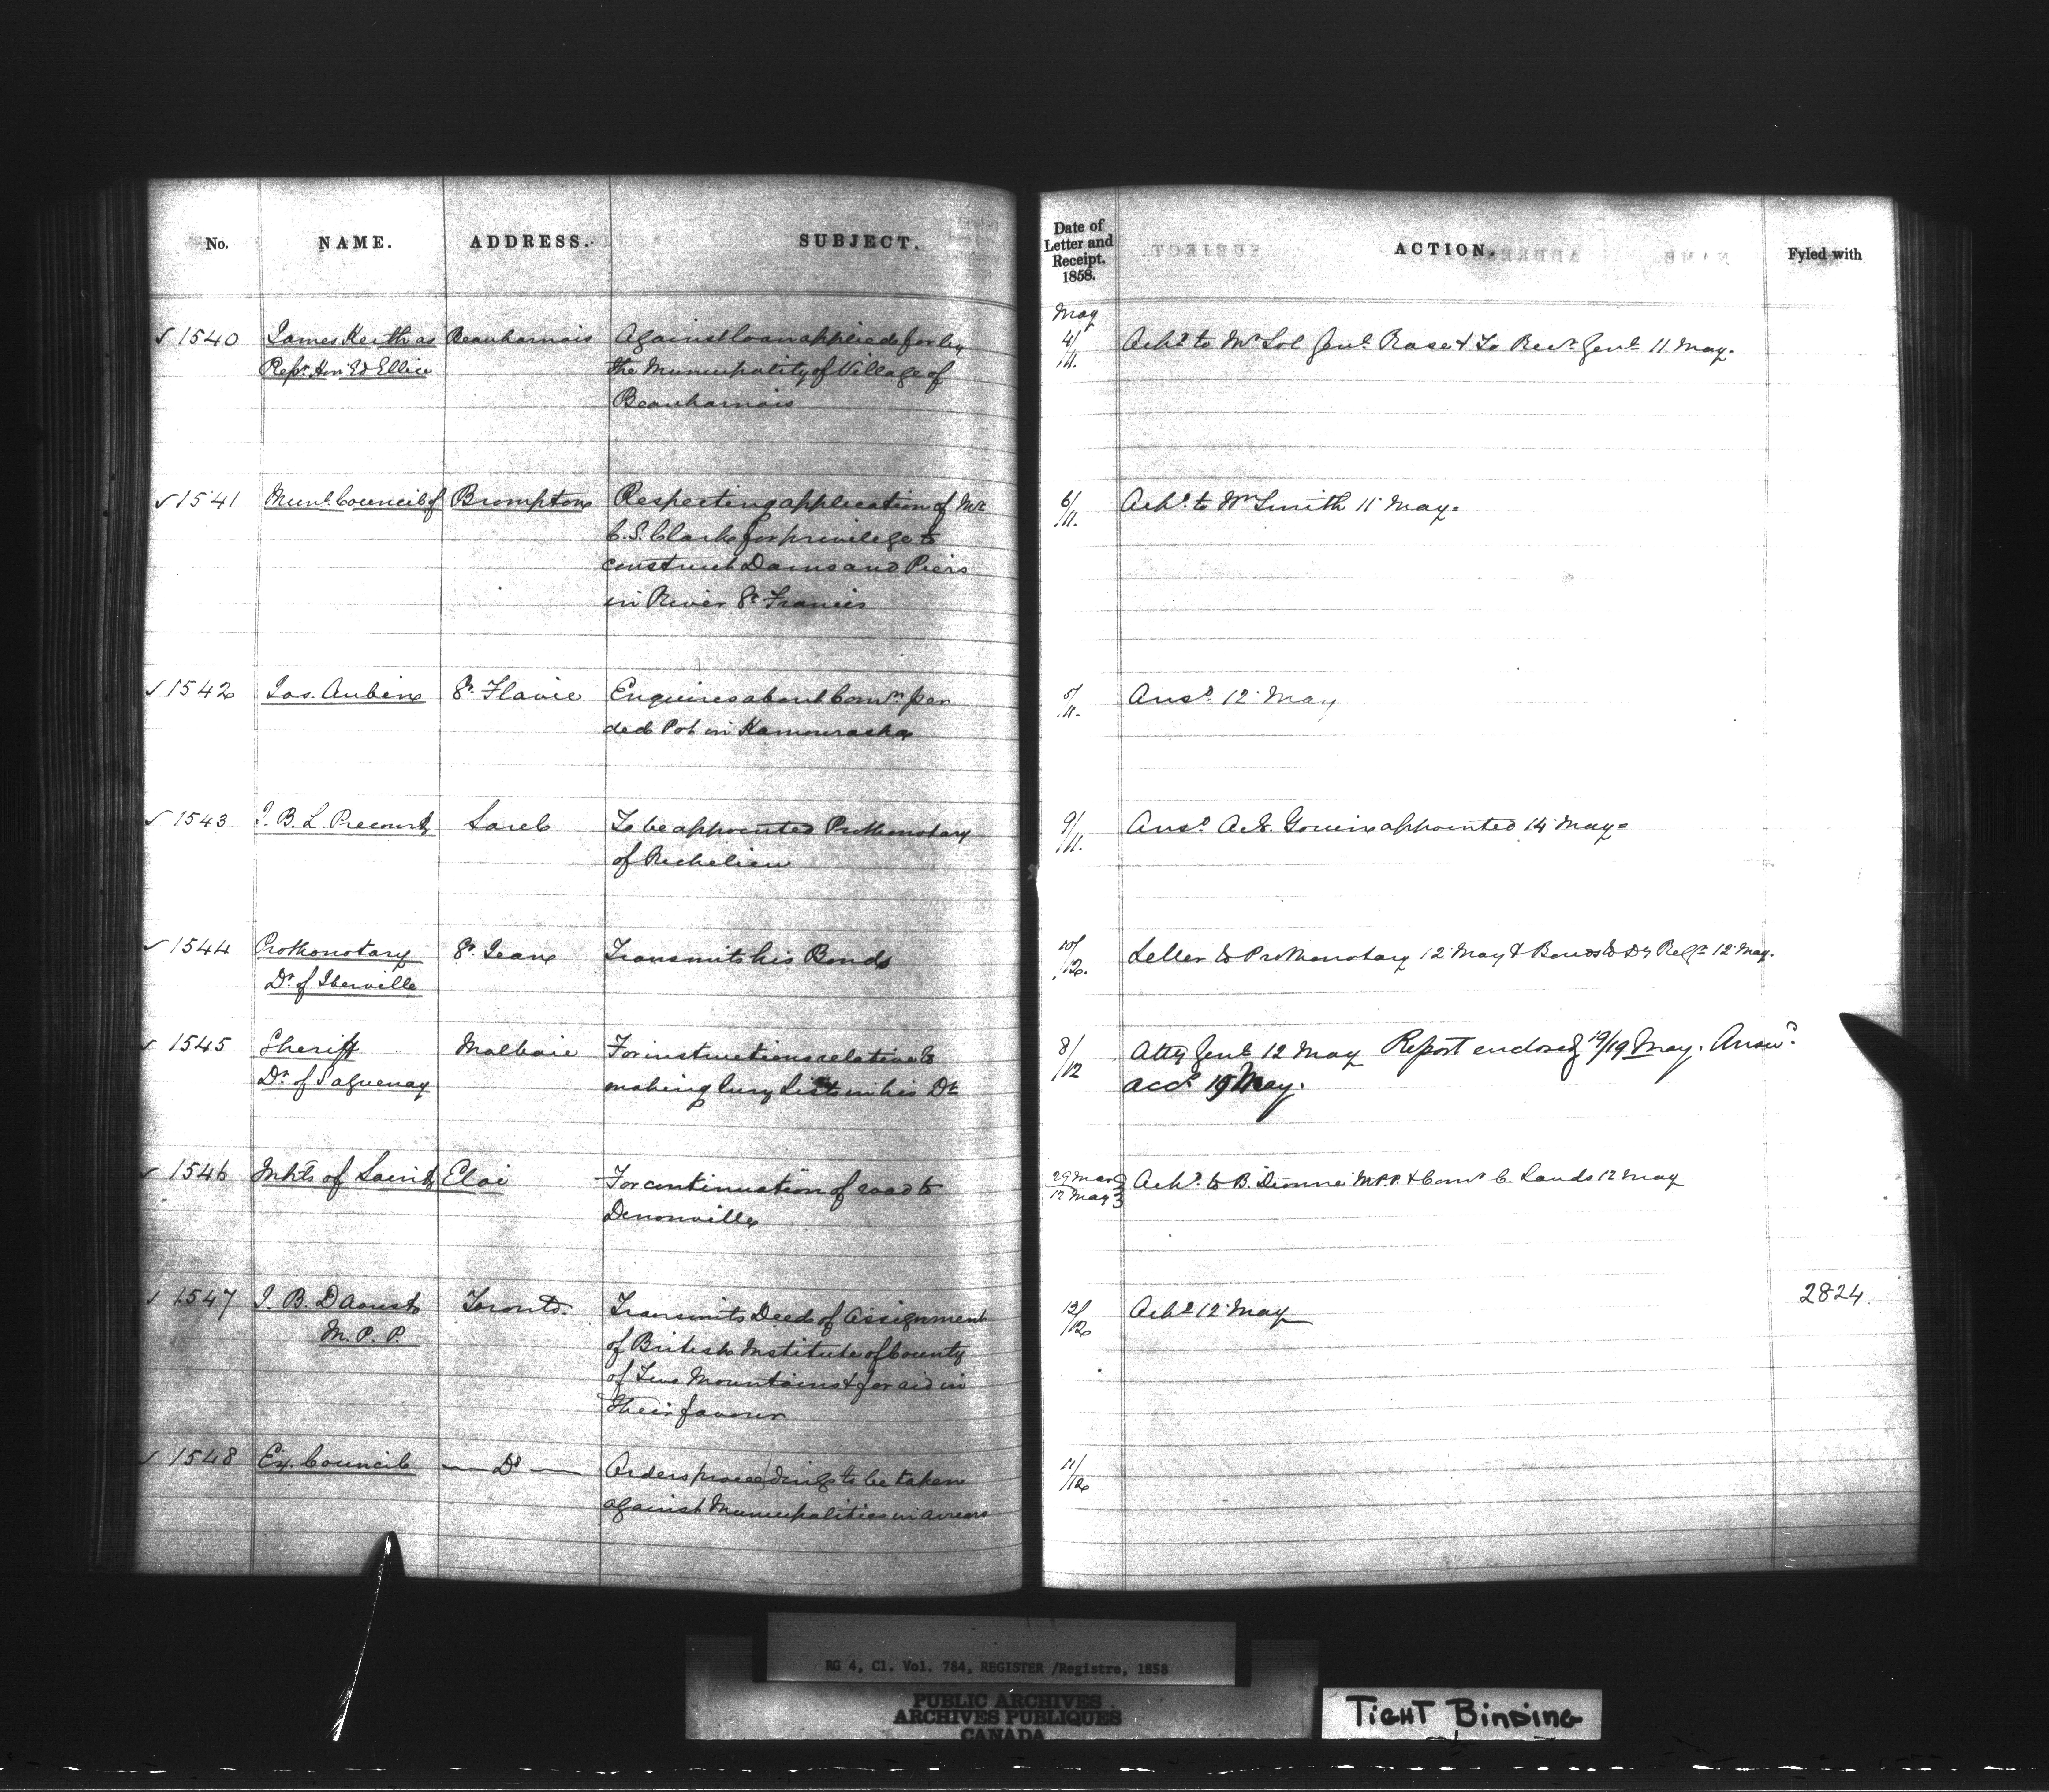 No. NAME. ADDRESS. SUBJECT.
Date of Letter and Receipt. 1858. ACTION. Fyled with
May
✓ 1540 James Keith as Beauharnois Against loan applied for by
Repr. Hon Ed Ellice the Municipality of Village of
Beauharnois
4/11. Ackd to Mr Sol Genl Rose & To Recr. Genl 11 May.
✓ 1541 Munl. Council of Brompton Respecting application of Mr
C. S. Clark for privilege to
construct Dams and Piers
in River St Francis
6/11. Ackd. to Wm Smith 11 May.
✓ 1542 Jos. Aubin St. Flavie Enquires about Comn per
ded Pot in Kamouraska
5/11. Ansd. 12 May
✓ 1543 J. B. L. Precourt Sorel To be appointed Prothonotary
of Richelieu
9/11. Ansd. A. Gouin appointed 14 May
✓ 1544 Prothonotary St. Jean Transmits his Bonds
Dt. of Iberville
10/12. Letter to Prothonotary 12 May & Bonds to Dy Regr 12 May.
✓ 1545 Sheriff Malbaie For instructions relative to
Dt. of Saguenay making Jury Lists in his Dt
8/12 Atty Genl 12 May Report enclosed 19/19 May. Answd
accd 19 May.
✓ 1546 Inhts of Saint Eloi For continuation of road to
Denonville
29 Mar
12 May Ackd. to B. Dionne M.P.P. & Comr C. Lands 12 May
✓ 1547 J. B. Daoust Toronto. Transmits Deed of Assignment
M. P. P. of British Institute of County
of Two Mountains & for aid in
their favour
12/12 Ackd 12 May 2824.
✓ 1548 Ex. Council — Do — Orders proceedings to be taken
against Municipalities in arrears
11/12
RG 4, C1. Vol. 784, REGISTER /Registre, 1858
PUBLIC ARCHIVES
ARCHIVES PUBLIQUES
CANADA
TIGHT BINDING